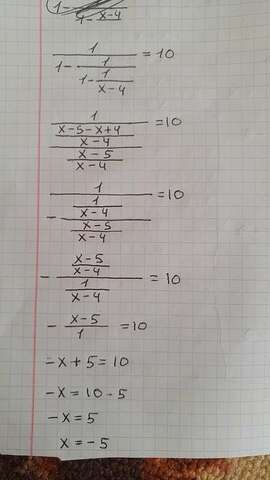 1/(1 - 1/(1 - 1/(x-4))) = 10
1/(((x-5-x+4)/(x-4))/((x-5)/(x-4))) = 10
- 1/((1/(x-4))/((x-5)/(x-4))) = 10
- ((x-5)/(x-4))/(1/(x-4)) = 10
- (x-5)/1 = 10
-x + 5 = 10
-x = 10 - 5
-x = 5
x = -5